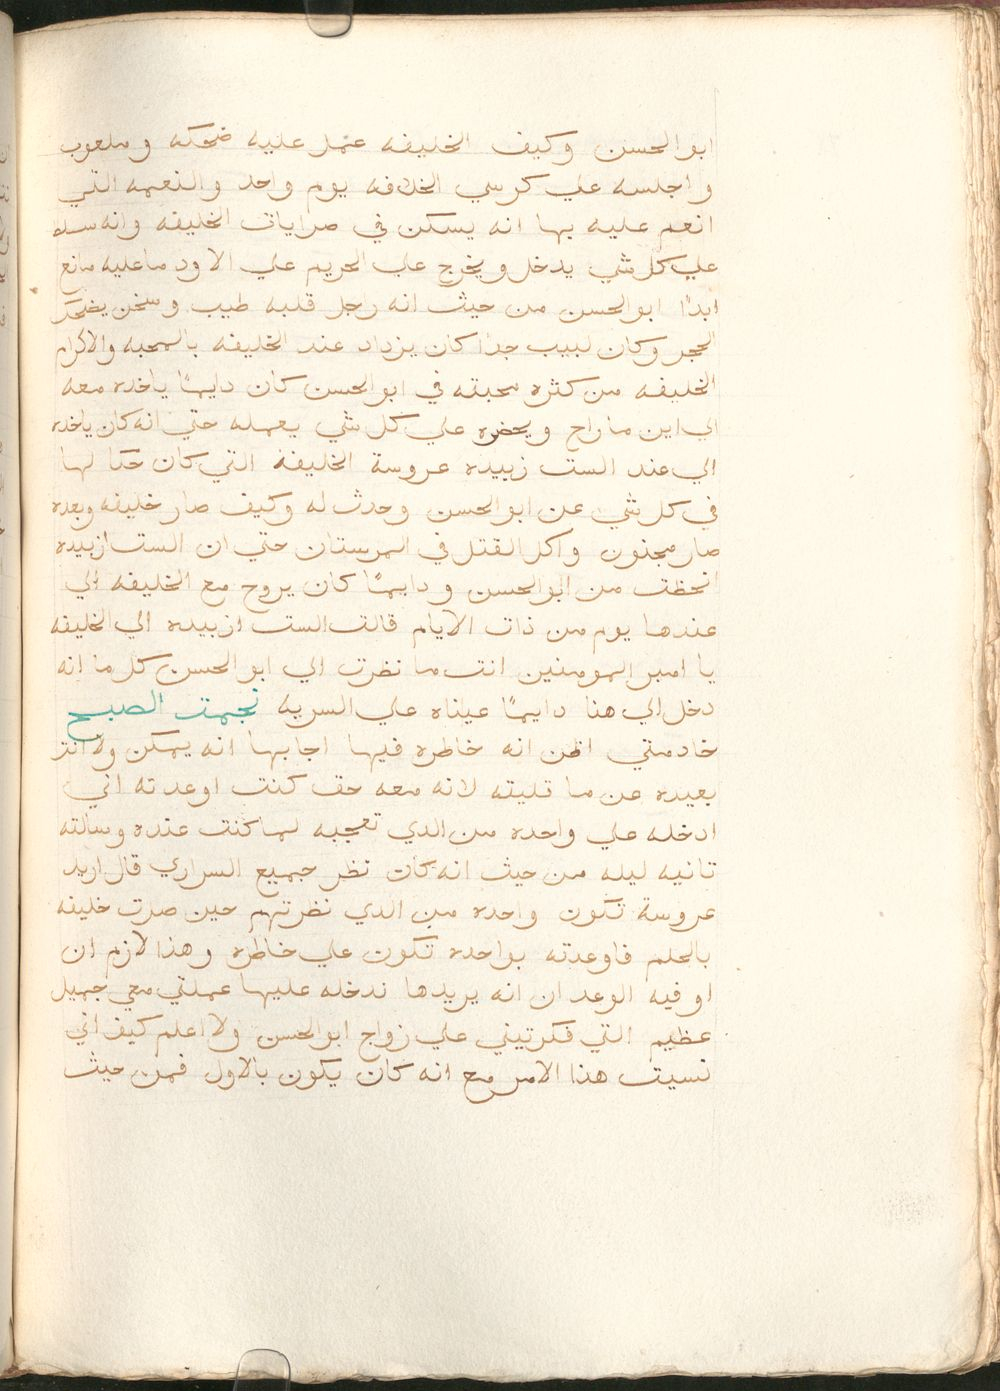 ابو الحسن وكيف الخليفه عمل عليه ضحكه وملعوب
واجلسه علي كرسي الخلافه يوم واحد والنعمه التي
انعم عليه بها انه يسكن في صرايات الخليفه وانه سلط
علي كل شي يدخل ويخرج علي الحريم علي الاود ما عليه مانع
ابدًا ابو الحسن من حيث انه رجل قلبه طيب وسخن يضحك
الحجر وكان لبيب جدًا كان يزداد عند الخليفه بالمحبه والاكرام
الخليفه من كثره محبته في ابو الحسن كان دايمًا ياخده معه
الي اين ما راح ويحضره علي كل شي يعمله حتي انه كان ياخده
الي عند الست زبيده عروسة الخليفه التي كان حكا لها
في كل شي عن ابو الحسن وحدث له وكيف صار خليفه وبعده
صار مجنون واكل القتل في المرستان حتي ان الست ازبيده
انحظت من ابو الحسن ودايمًا كان يروح مع الخليفه الي
عندها يوم من ذات الايام قالت الست ازبيده الي الخليفه
يا امير المومنين انت ما نظرت الي ابو الحسن كل ما انه
دخل الي هنا دايمًا عيناه علي السريه نجمت الصبح
خادمتي اظن انه خاطره فيها اجابها انه يمكن ولا انتي
بعيده عن ما قليته لانه معه حق كنت اوعدته اني
ادخله علي واحده من الدي تعجبه لما كنت عنده وسالته
تانيه ليله من حيث انه كان نظر جميع السراري قال اريد
عروسة تكون واحده من الدي نظرتهم حين صرت خليفه
بالحلم فاوعدته بواحده تكون علي خاطره وهذا لازم ان
اوفيه الوعد ان انه يريدها ندخله عليها عملتي معي جميل
عظيم التي فكرتيني علي زواج ابو الحسن ولا اعلم كيف اني
نسيت هذا الامر مع انه كان يكون بالاول فمن حيث